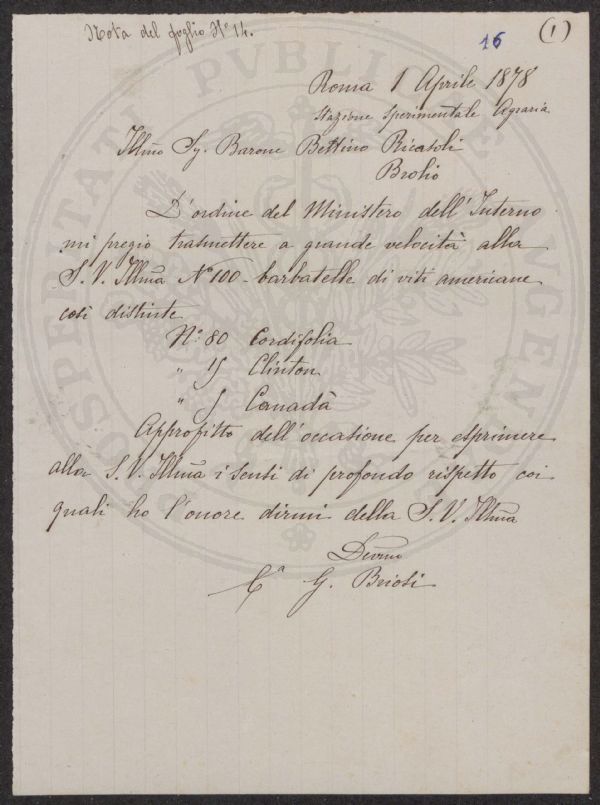 Nota del foglio N° 14.
16
(1)
Roma 1 Aprile 1878
Stazione Sperimentale Agraria
Illmo Sg. Barone Bettino Ricasoli
Brolio
D'ordine del Ministero dell'Interno
mi pregio trasmettere a grande velocità alla
S. V. Illma N° 100 - barbatelle di viti americane
così distinte
N°. 80 Cordifolia
" 15 Clinton
" 5 Canadà
Approfitto dell'occasione per esprimere
alla S. V. Illma i sensi di profondo rispetto coi
quali ho l'onore dirmi della S. V. Illma
Devmo
G. Briosi
PROSPERITATI PVBLICAE AVGENDAE